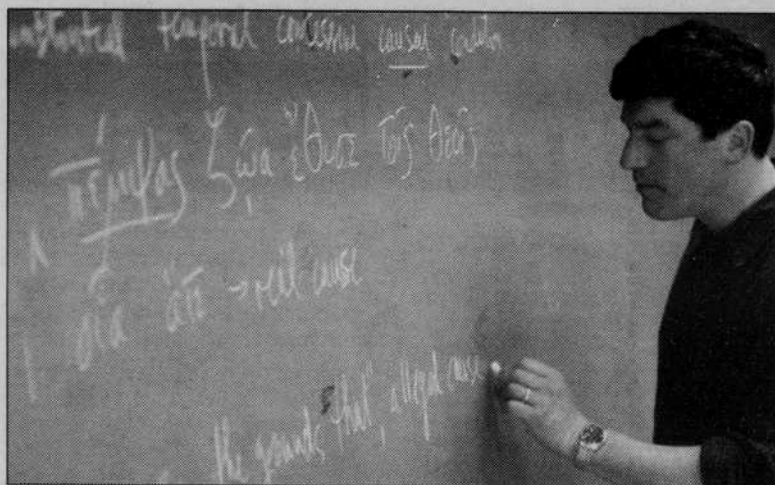 temporal concessive causal
πέμψας ζῷα ἔθυσε τοῖς θεοῖς
οἷα ἅτε → real cause
the grounds that", alleged cause